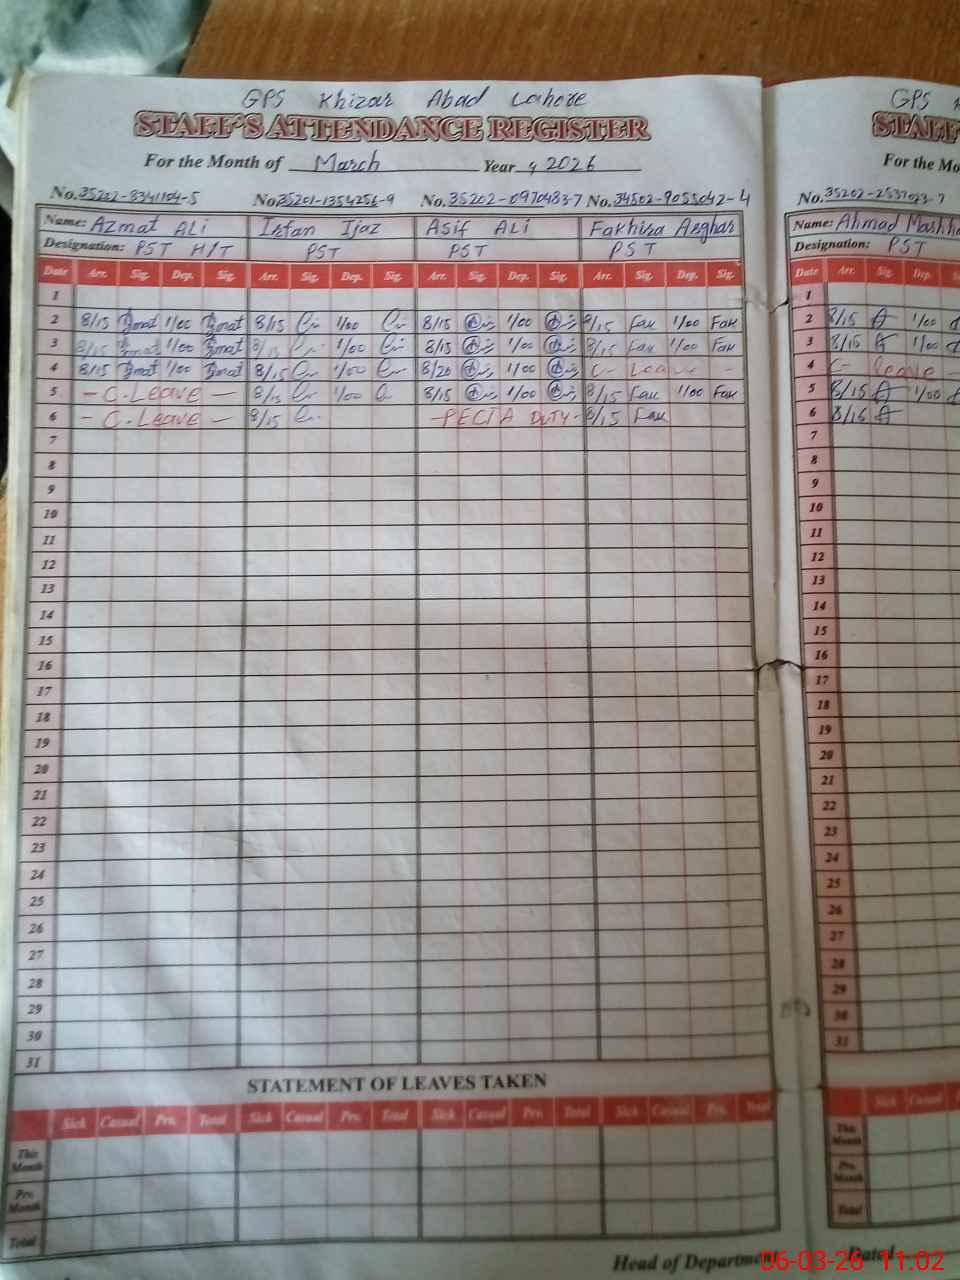 GPS Khizar Abad Lahore
STAFF'S ATTENDANCE REGISTER
For the Month of March Year 2026
No. 35202-8341104-5 No. 35201-1354256-9 No. 35202-0970483-7 No. 34502-9055042-4
Name: Azmat ALi Irfan Ijaz Asif ALi Fakhira Asghar
Designation: PST H/T PST PST PST
Date Arr. Sig. Dep. Sig. Arr. Sig. Dep. Sig. Arr. Sig. Dep. Sig. Arr. Sig. Dep. Sig.
1
2 8/15 Azmat 1/00 Azmat 8/15 1/00 8/15 1/00 8/15 Fak 1/00 Fak
3 8/15 Azmat 1/00 Azmat 8/15 1/00 8/15 1/00 8/15 Fak 1/00 Fak
4 8/15 Azmat 1/00 Azmat 8/15 1/00 8/20 1/00 C- Leave -
5 - C.LEAVE - 8/15 1/00 8/15 1/00 8/15 Fak 1/00 Fak
6 - C.LEAVE - 8/15 - PECTA DUTY - 8/15 Fak
7
8
9
10
11
12
13
14
15
16
17
18
19
20
21
22
23
24
25
26
27
28
29
30
31
STATEMENT OF LEAVES TAKEN
Sick Casual Prv. Total Sick Casual Prv. Total Sick Casual Prv. Total Sick Casual Prv. Total
This Month
Prv. Month
Total
Head of Departmen
GPS
STAFF
For the Mo
No. 35202-2537023-7
Name: Ahmad Mashh
Designation: PST
Date Arr. Sig. Dep.
1
2 8/15 A 1/00
3 8/15 A 1/00
4 C- leave -
5 8/15 A 1/00
6 8/15 A
7
8
9
10
11
12
13
14
15
16
17
18
19
20
21
22
23
24
25
26
27
28
29
30
31
Sick Casual
This Month
Prv. Month
Total
Dated
06-03-26 11:02